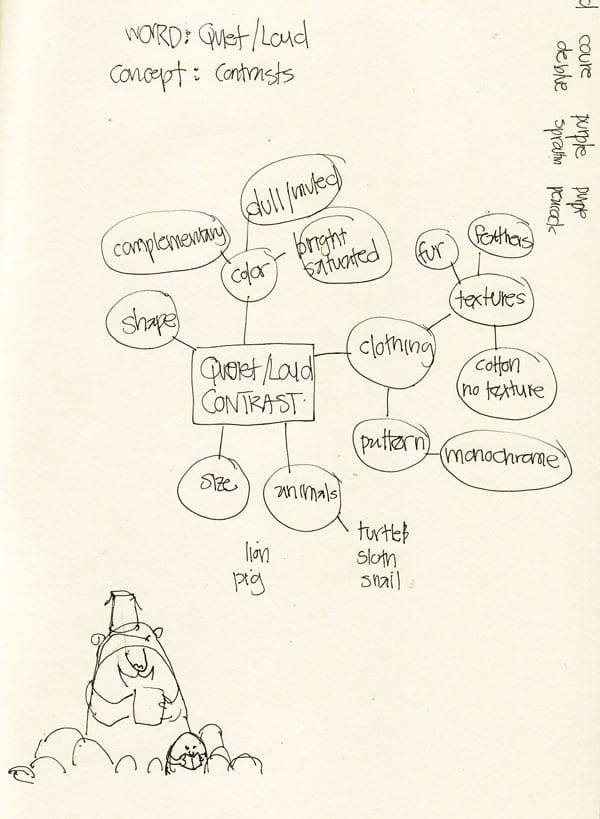 WORD: Quiet/Loud
Concept: Contrasts
purple
dull/muted
complementary
color
bright
saturated
fur
feathers
textures
shape
clothing
cotton
no texture
Quiet/Loud
CONTRAST
pattern
monochrome
size
animals
lion
pig
turtle
sloth
snail